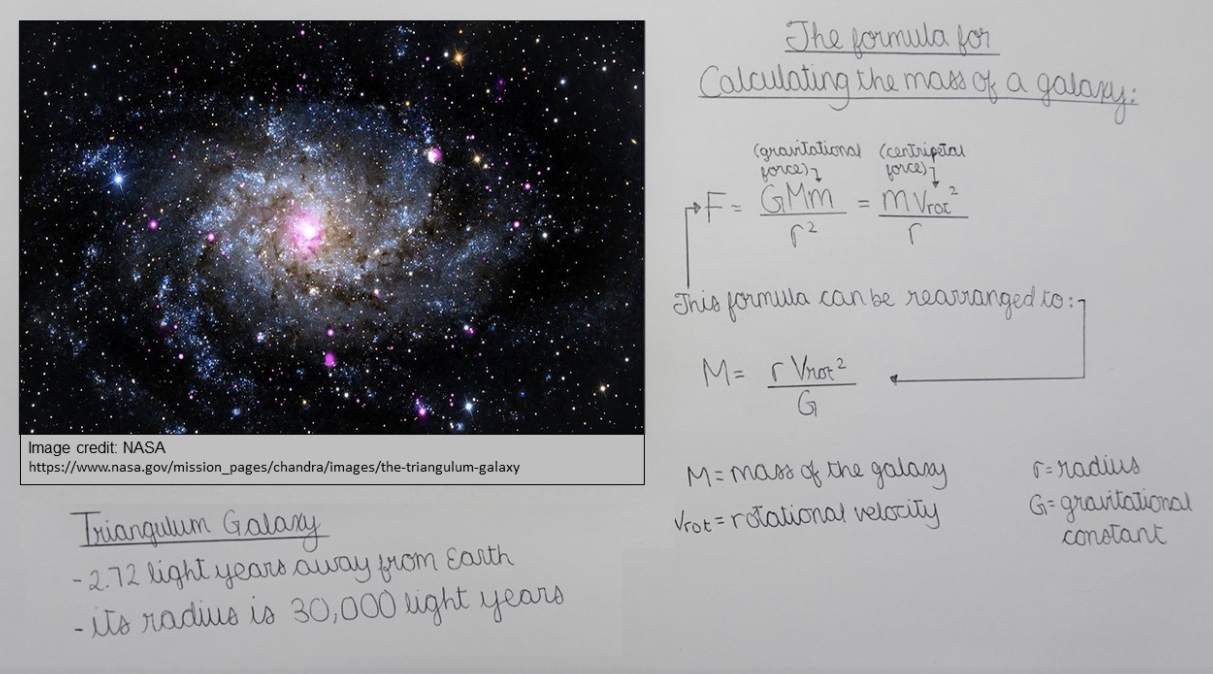 Image credit: NASA
https://www.nasa.gov/mission_pages/chandra/images/the-triangulum-galaxy
Triangulum Galaxy
- 2.72 light years away from Earth
- its radius is 30,000 light years
The formula for
Calculating the mass of a galaxy:
(gravitational force) (centripetal force)
F = GMm/r² = m Vrot²/r
This formula can be rearranged to:
M = r Vrot²/G
M = mass of the galaxy
Vrot = rotational velocity
r = radius
G = gravitational
constant